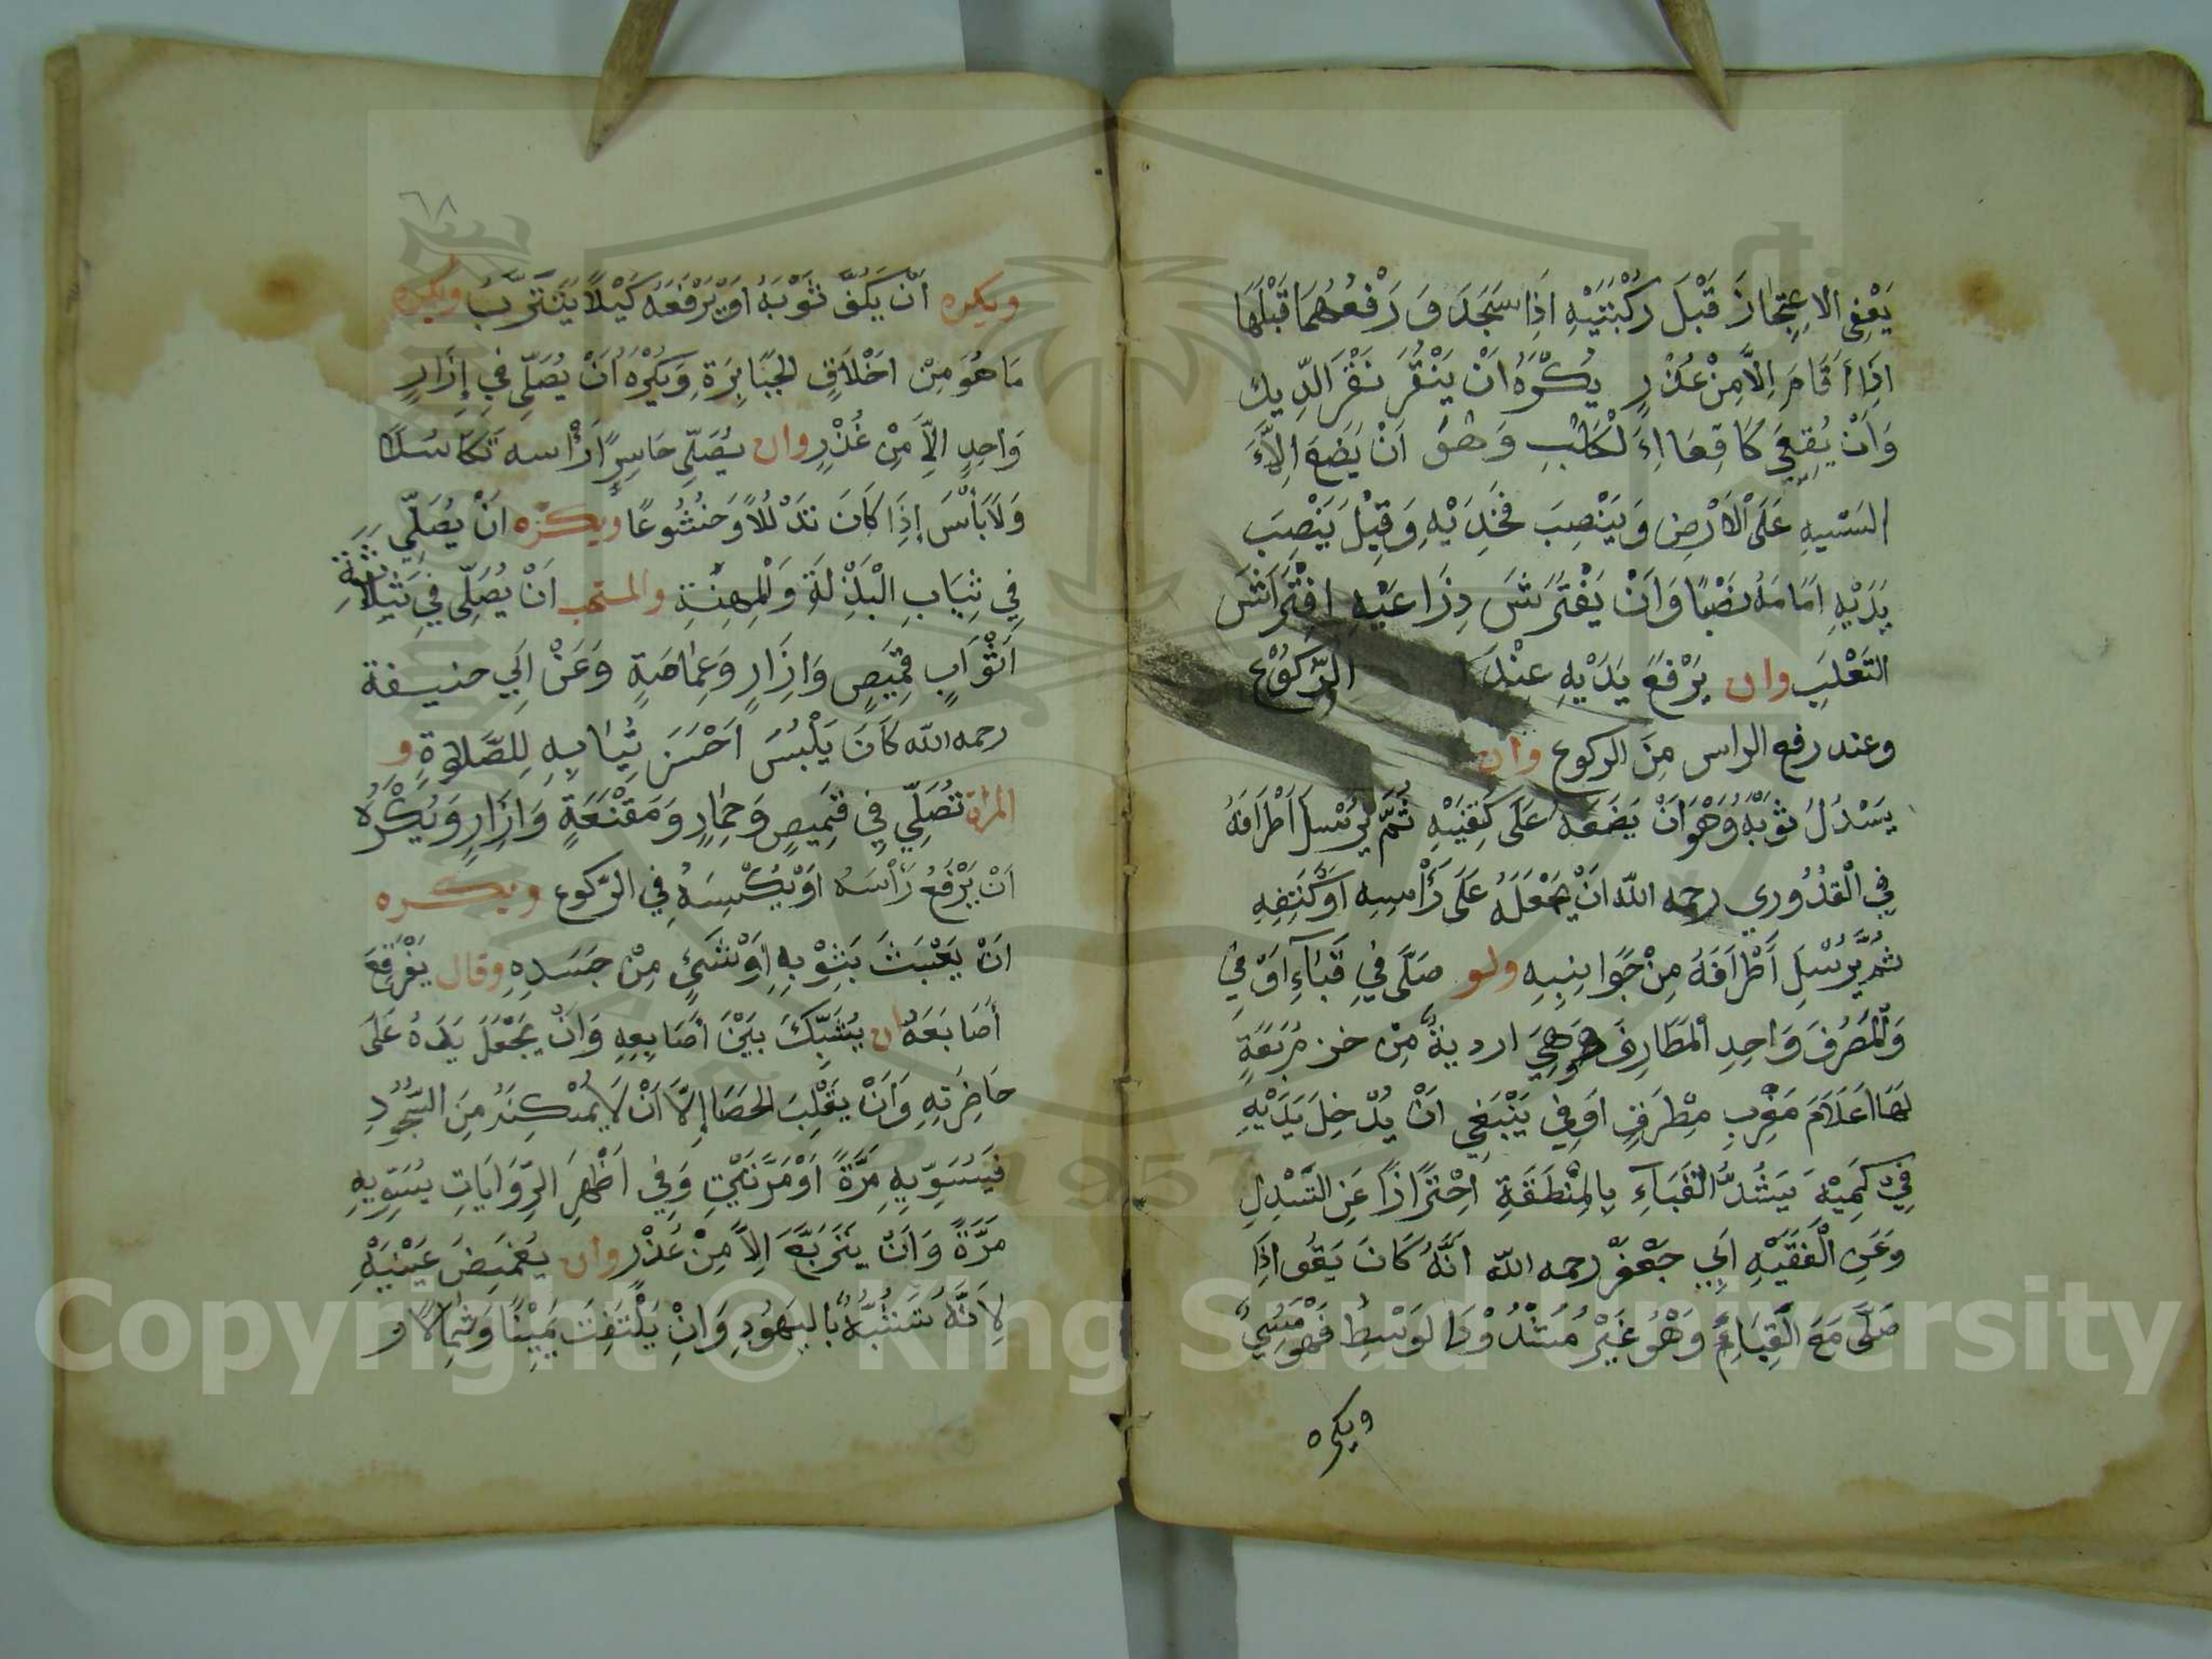 يَعْنِي الاِعْتِجَازَ قَبْلَ رُكْبَتَيْهِ اِذَا سَجَدَ وَ رَفْعُهُمَا قَبْلَهَا
اِذَا أَقَامَ اِلَّا مِنْ عُذْرٍ يُكْرَهُ اَنْ يَنْقُرَ نَقْرَ الدِّيك
وَاَنْ يُقْعِيَ كَاقِعَاءِ الْكَلْبِ وَهُوَ اَنْ يَضَعَ
اليتيهِ عَلَى الْاَرْضِ وَيَنْصِبَ فَخِذَيْهِ وَقِيْلَ يَنْصِبَ
يَدَيْهِ اَمَامَهُ نَصْبًا وَاَنْ يَفْتَرِشَ ذِرَاعَيْهِ افْتِرَاشَ
الثَّعْلَبِ وان يَرْفَعَ يَدَيْهِ عِنْدَ الرُّكُوْعِ
وعند رفع الراس مِنَ الركوع وان
يَسْدُلَ ثَوْبَهُ وَهُوَ اَنْ يَضَعَهُ عَلَى كَتِفَيْهِ ثُمَّ يُرْسِلَ اَطْرَافَهُ
فِي الْقُدُورِي رحمه الله اَنْ يَجْعَلَهُ عَلَى رَأْسِهِ اَوْ كَتِفِهِ
ثُمَّ يُرْسِلَ أَطْرَافَهُ مِنْ جَوَانِبِهِ ولو صَلَّى فِي قَبَآءٍ اَوْ فِي
وَالْمُصْرُفَ وَاحِدِ الْمَطَارِفَ وَهِيَ اردية مِنْ خز مُرَبَّعَةٍ
لهَا اَعْلَامَ مِطْرَفٍ اَوْ فِي يَنْبَغِي اَنْ يُدْخِلَ يَدَيْهِ
فِي كُمَيْهِ يَشُدُّ الْقَبَاءِ بِالْمِنْطَقَةِ اِحْتِرَازًا عَنِ السَّدْلِ
وَعَنِ الْفَقِيْهِ اَبِي جَعْفَرْ رحمه الله اَنَّهُ كَانَ يَقُو اِذَا
صَلَّى مَعَ الْقَبَاءِ وَهُوَ غَيْرُ مَشْدُوْدِ الوَسْطِ فَهُوَ مُسِيْ
ويكره
٦٨
ويكره اَنْ يَكُفَّ ثَوْبَهُ اَوْ يَرْفَعَهُ كَيْلَا يَتَتَرَّبُ ويكره
مَا هُوَ مِنْ اَخْلَاقِ الجَبَابِرَةِ وَيُكْرَهُ اَنْ يُصَلِّي فِي إِزَارٍ
وَاحِدٍ اِلَّا مِنْ عُذْرٍ وان يُصَلِّيَ حَاسِرًا رَأْسه تَكَاسُلًا
وَلَا بَأْسَ إِذَا كَانَ تَذَلُّلًا وَخُشُوعًا ويكره اَنْ يُصَلِّي
فِي ثِيَابِ الْبَذْلَةِ وَالْمِهْنَةِ والمستحب اَنْ يُصَلِّي فِي ثَلاثَةِ
اَثْوَابٍ قَمِيْصٍ وَاِزَارٍ وَعِمَامَةٍ وَعَنْ اَبِي حنيفة
رحمه الله كَانَ يَلْبُسَ اَحْسَنَ ثِيَابِهِ لِلصَّلَاةِ و
المراة تُصَلِّي فِي قَمِيصٍ وَخِمَارٍ وَمَقْنَعَةٍ وَاِزَارٍ وَيُكْرَهُ
اَنْ يَرْفَعَ رَأْسَهُ اَوْ يُنْكِسَهُ فِي الرُّكوع ويكره
اَنْ يَعْبَثَ بَثِوْبِهِ اَوْ شَيْءٍ مِنْ جَسَدِهِ وقال يَفْرَقِعَ
أَصَابَعَهُ ان يُشَبِّكَ بَيْنَ اَصَابِعِهِ وَاَنْ يَجْعَلَ يَدَهُ عَلَى
خَاصِرَتِهِ وَاَنْ يَقْلِبَ الحَصَا إِلَّا اَنْ لَا يُمْكِنَهُ مِنَ السُّجُوْدِ
فَيُسَوِّيهِ مَرَّةً اَوْ مَرَّتَيْنِ وَفِي اَظْهَرِ الرِّوَايَاتِ يُسَوِّيهِ
مَرَّةً وَاَنْ يَتَرَبَّعَ اِلَّا مِنْ عُذْرٍ وان يُغْمِضَ عَيْنَيْهِ
لِاَنَّهُ تَشَبُّهٌ بِاليَهُودِ وَاَنْ يَلْتَفِتَ يَمِيْنًا وَشِمَالًا و